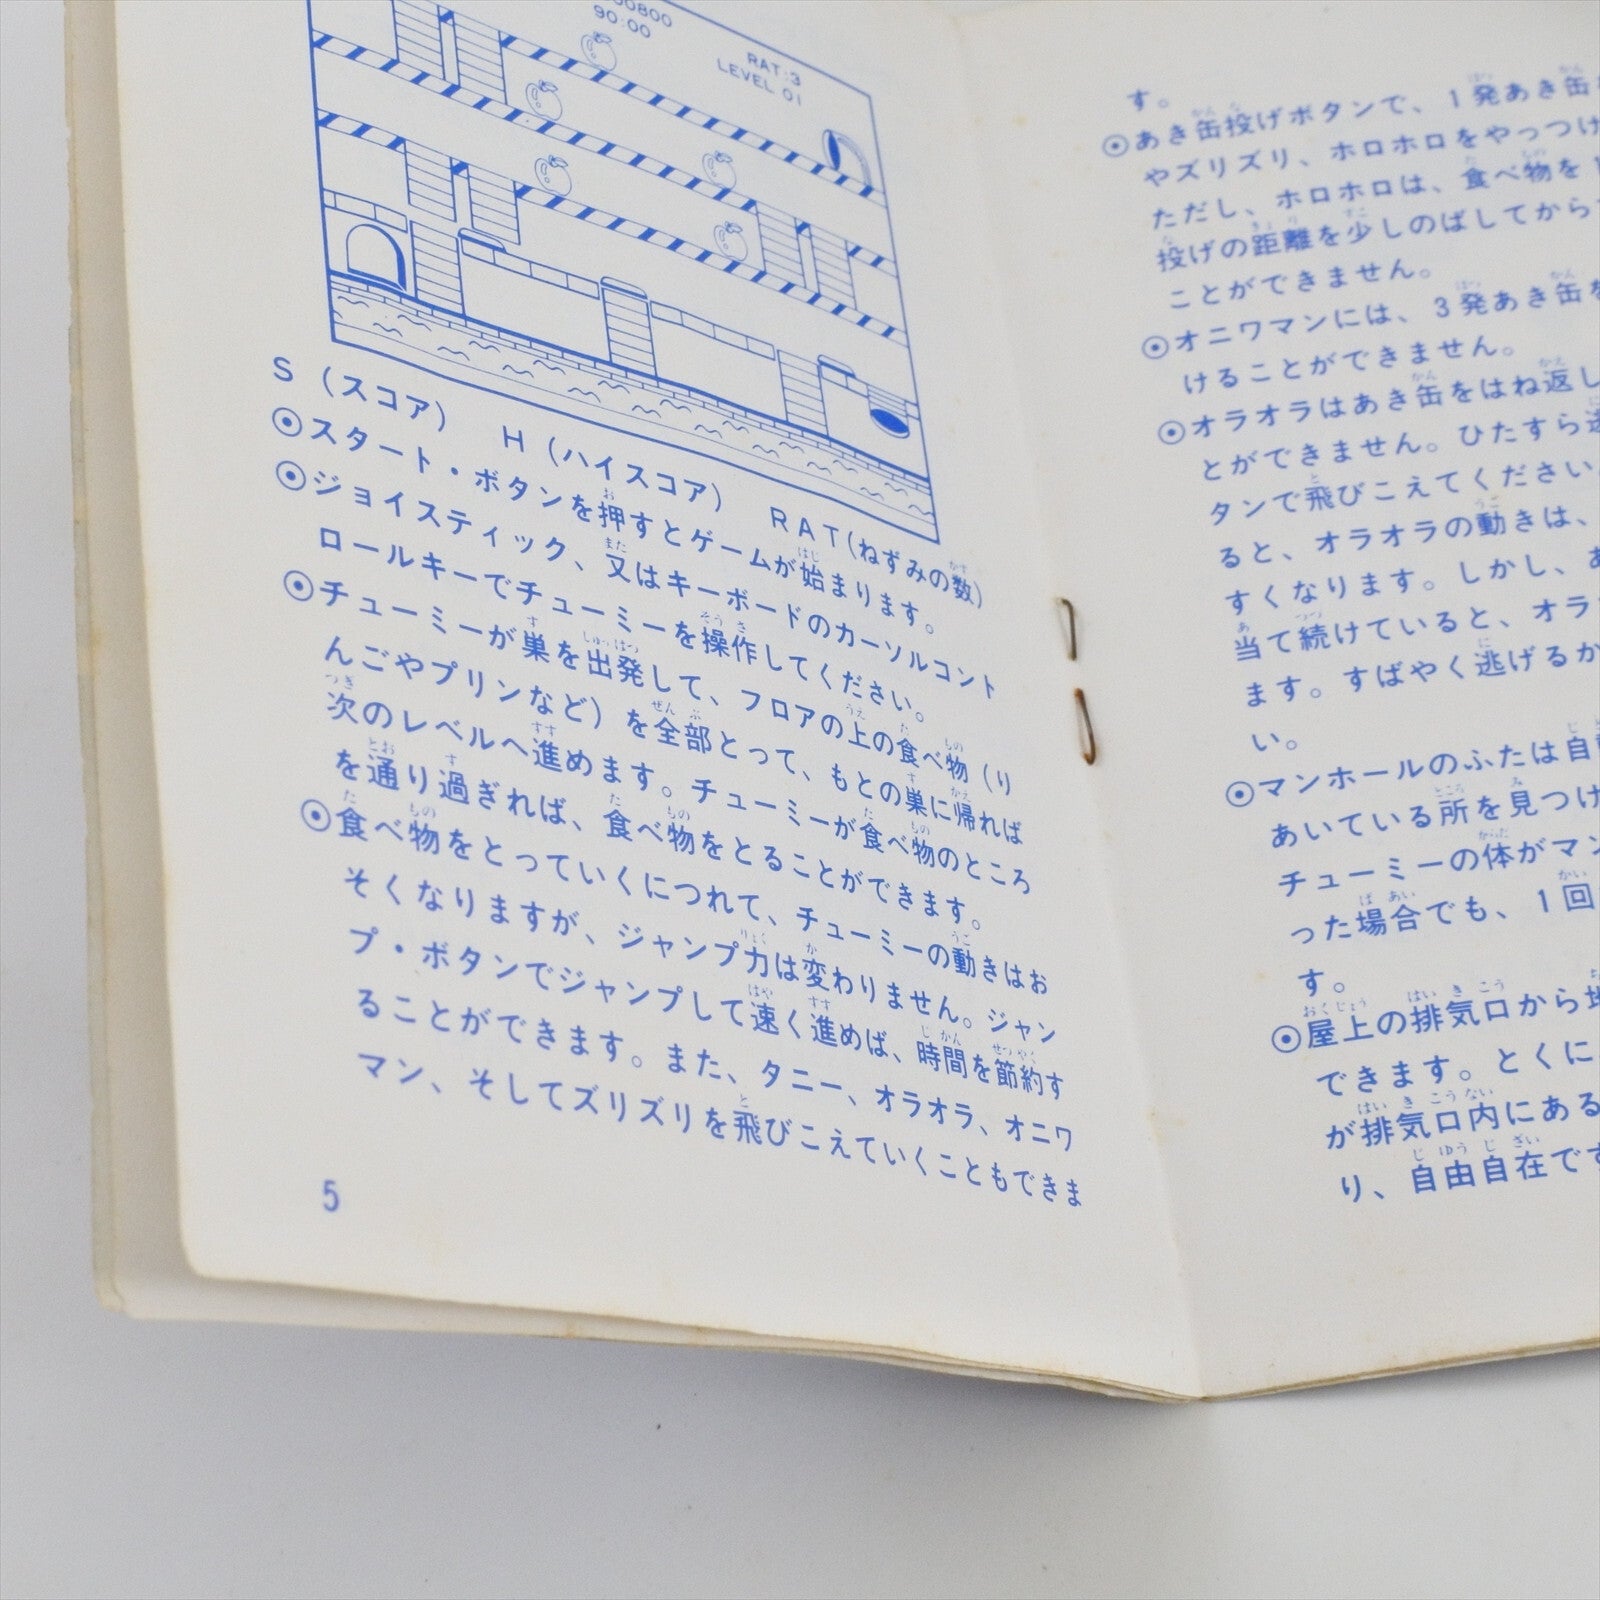 00800
90:00
RAT:3
LEVEL 01
S（スコア）　H（ハイスコア）　RAT（ねずみの数）
◉スタート・ボタンを押すとゲームが始まります。
◉ジョイスティック、又はキーボードのカーソルコント
ロールキーでチューミーを操作してください。
◉チューミーが巣を出発して、フロアの上の食べ物（り
んごやプリンなど）を全部とって、もとの巣に帰れば
次のレベルへ進めます。チューミーが食べ物のところ
を通り過ぎれば、食べ物をとることができます。
◉食べ物をとっていくにつれて、チューミーの動きはお
そくなりますが、ジャンプ力は変わりません。ジャン
プ・ボタンでジャンプして速く進めば、時間を節約す
ることができます。また、タニー、オラオラ、オニワ
マン、そしてズリズリを飛びこえていくこともできま
5
す。
◉あき缶投げボタンで、1発あき缶
やズリズリ、ホロホロをやっつけ
ただし、ホロホロは、食べ物を
投げの距離を少しのばしてから
ことができません。
◉オニワマンには、3発あき缶を
けることができません。
◉オラオラはあき缶をはね返し
とができません。ひたすら逃
タンで飛びこえてください
ると、オラオラの動きは、
すくなります。しかし、あ
当て続けていると、オラ
ます。すばやく逃げるか
い。
◉マンホールのふたは自
あいている所を見つけ
チューミーの体がマン
った場合でも、1回
す。
◉屋上の排気口から
できます。とくに
が排気口内にある
り、自由自在です